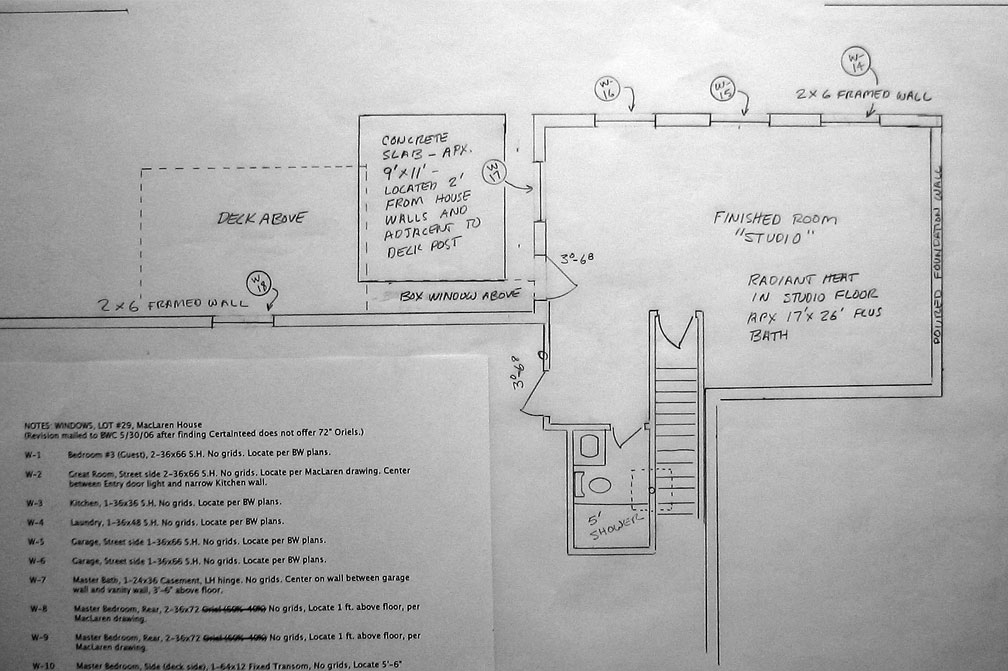 W-16
W-15
W-14
2X6 FRAMED WALL
CONCRETE
SLAB - APX.
9'X11' -
LOCATED 2'
FROM HOUSE
WALLS AND
ADJACENT TO
DECK POST
W 17
DECK ABOVE
FINISHED ROOM
"STUDIO"
3⁰-6⁸
RADIANT HEAT
IN STUDIO FLOOR
APX 17'X 26' PLUS
BATH
POURED FOUNDATION WALL
W 18
2X6 FRAMED WALL
BOX WINDOW ABOVE
3⁰-6⁸
5'
SHOWER
NOTES: WINDOWS, LOT #29, MacLaren House
(Revision mailed to BWC 5/30/06 after finding Certainteed does not offer 72" Oriels.)
W-1 Bedroom #3 (Guest), 2-36x66 S.H. No grids. Locate per BW plans.
W-2 Great Room, Street side 2-36x66 S.H. No grids. Locate per MacLaren drawing. Center
between Entry door light and narrow Kitchen wall.
W-3 Kitchen, 1-36x36 S.H. No grids. Locate per BW plans.
W-4 Laundry, 1-36x48 S.H. No grids. Locate per BW plans.
W-5 Garage, Street side 1-36x66 S.H. No grids. Locate per BW plans.
W-6 Garage, Street side 1-36x66 S.H. No grids. Locate per BW plans.
W-7 Master Bath, 1-24x36 Casement, LH hinge. No grids. Center on wall between garage
wall and vanity wall, 3'-6" above floor.
W-8 Master Bedroom, Rear, 2-36x72 Oriel (60%-40%) No grids, Locate 1 ft. above floor, per
MacLaren drawing.
W-9 Master Bedroom, Rear, 2-36x72 Oriel (60%-40%) No grids, Locate 1 ft. above floor, per
MacLaren drawing.
W-10 Master Bedroom, Side (deck side), 1-64x12 Fixed Transom, No grids, Locate 5'-6"